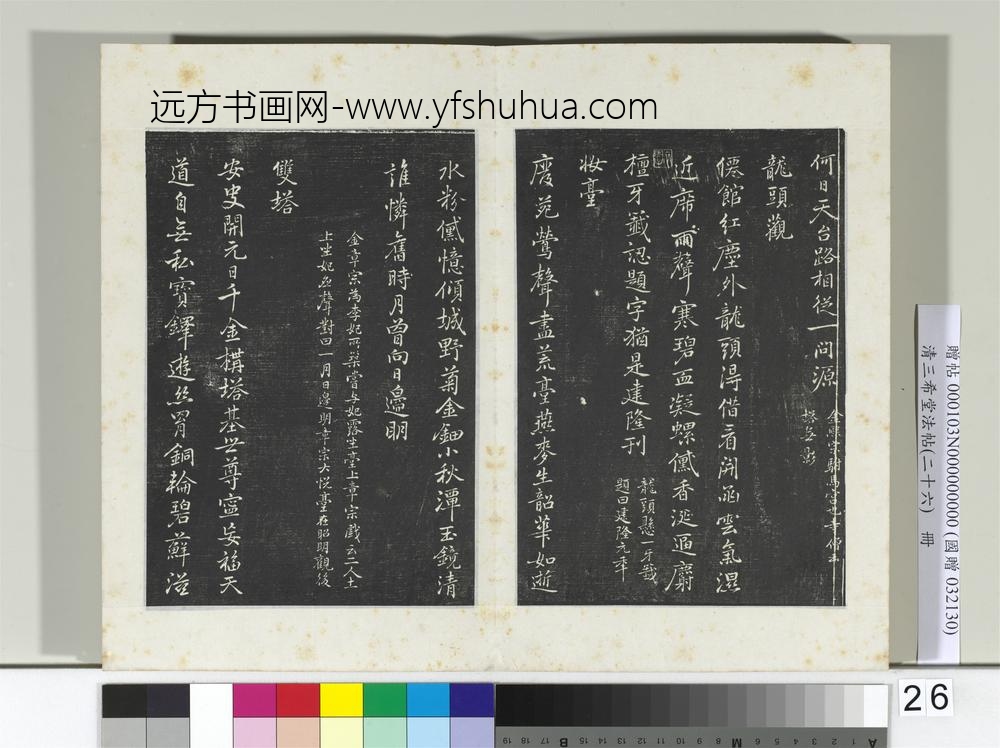 远方书画网-www.yfshuhua.com
何日天台路相從一問源
金熙宗駙馬宮也寺僧云
塔無影
龍頭觀
僊館紅塵外龍頭得借看開函雲氣濕
近席雨聲寒碧血凝螺儻香涎過麝
檀牙籤認題字猶是建隆刊
龍頭懸一牙籤
題曰建隆元年
妝臺
廢苑鶯聲盡荒臺燕麥生韶華如逝
水粉儻憶傾城野菊金鈿小秋潭玉鏡清
誰憐舊時月曾向日邊明
金章宗為李妃所築嘗与妃露坐臺上章宗戲云二人土
上坐妃應聲對曰一月日邊明章宗大悅臺在昭明觀後
雙塔
安史開元日千金構塔基世尊寧妄福天
道自無私寶鐸遊絲罥銅輪碧蘚滋
贈帖 000103N000000000 (國贈 032130)
清三希堂法帖(二十六) 冊
26